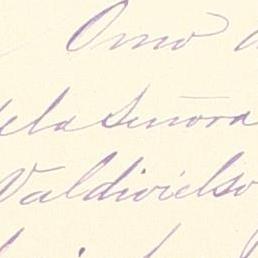 Omo
dela Señora
Valdivielso